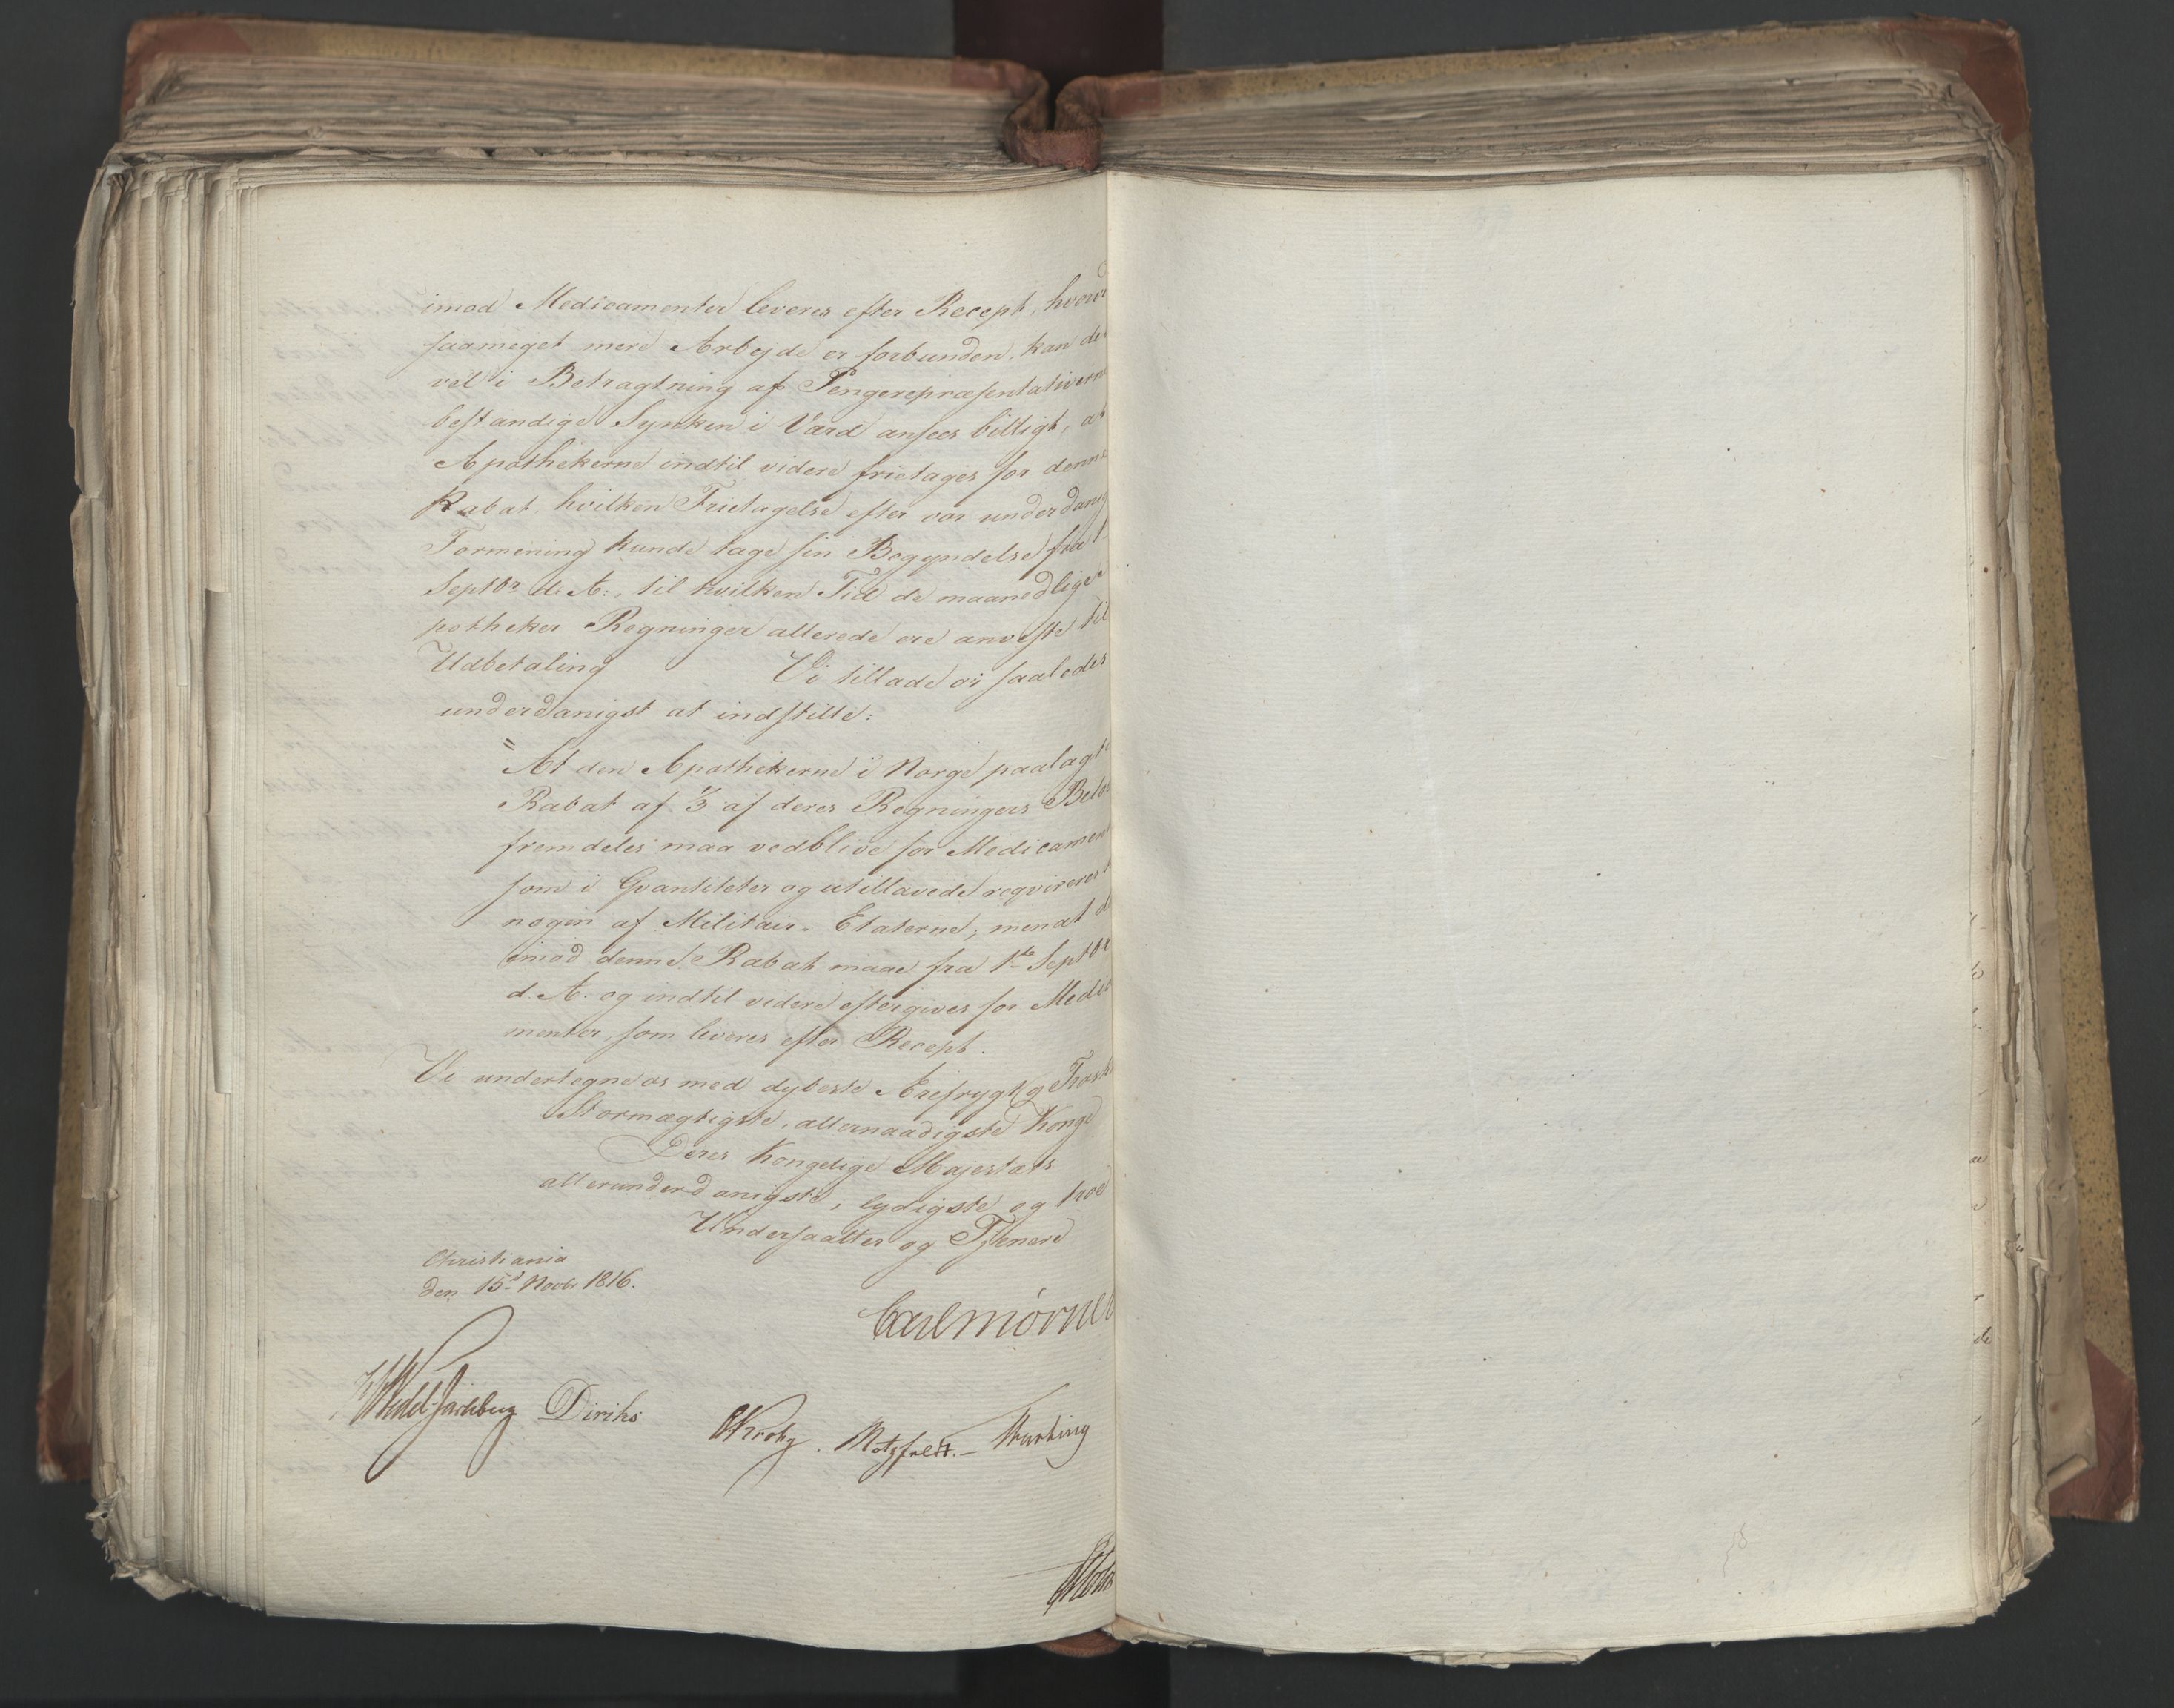 imod Medicamenter leveres efter Recept, hvorv
saameget mere Arbejde er forbunden, kan de
vel i Betragtning af Pengerepræsentativerne
bestandige Synken i Værd ansees billigt, at
Apothekerne indtil videre fritages for denne
Rabat, hvilken Fritagelse efter vor underdanig
Formening kunde tage sin Begyndelse fra 1
Septbr d. A., til hvilken Tid de maanedlige A
potheker Regninger allerede ere anviste til
Udbetaling Vi tillade os saaledes
underdanigst at indstille:
"At den Apothekerne i Norge paalagte
Rabat af 1/3 af deres Regningers Belø
fremdeles maa vedblive for Medicamen
som i Qvantiteter og utillavede reqvireres t
nogen af Militair-Etaterne; men at de
imod denne Rabat maae fra 1ste Septbr
d. A. og indtil videre eftergives for Medic
menter, som leveres efter Recept.
Vi undertegne os med dybeste Ærefrygt og Trosk
Stormægtigste, allernaadigste Konge
Deres Kongelige Majestæts
allerunderdanigste, lydigste og troe
Undersaatter og Tjenere
Christiania
den 15d Novbr 1816.
Carl Mörner
Wedel Jarlsberg Diriks
Krohg. Motzfeldt. Thesting